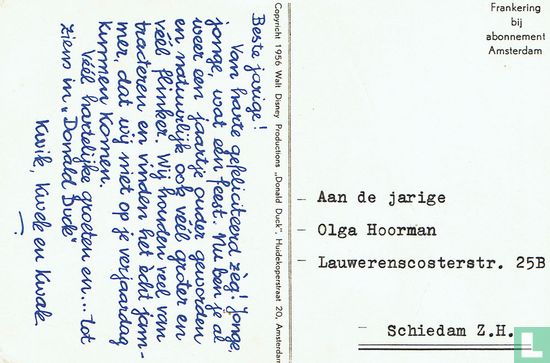 Beste jarige!
Van harte gefeliciteerd zèg! Jonge,
jonge, wat een feest. Nu ben je al
weer een jaartje ouder geworden
en natuurlijk ook véél groter en
véél flinker. Wij houden veel van
tracteren en vinden het ècht jam-
mer, dat wij niet op je verjaardag
kunnen komen.
Véél hartelijke groeten en... tot
ziens in "Donald Duck"
Kwik, Kwek en Kwak.
Copyright 1956 Walt Disney Productions „Donald Duck". Huidekoperstraat 20, Amsterdam
Frankering
bij
abonnement
Amsterdam
Aan de jarige
Olga Hoorman
Lauwerenscosterstr. 25B
Schiedam Z.H.
catawiki